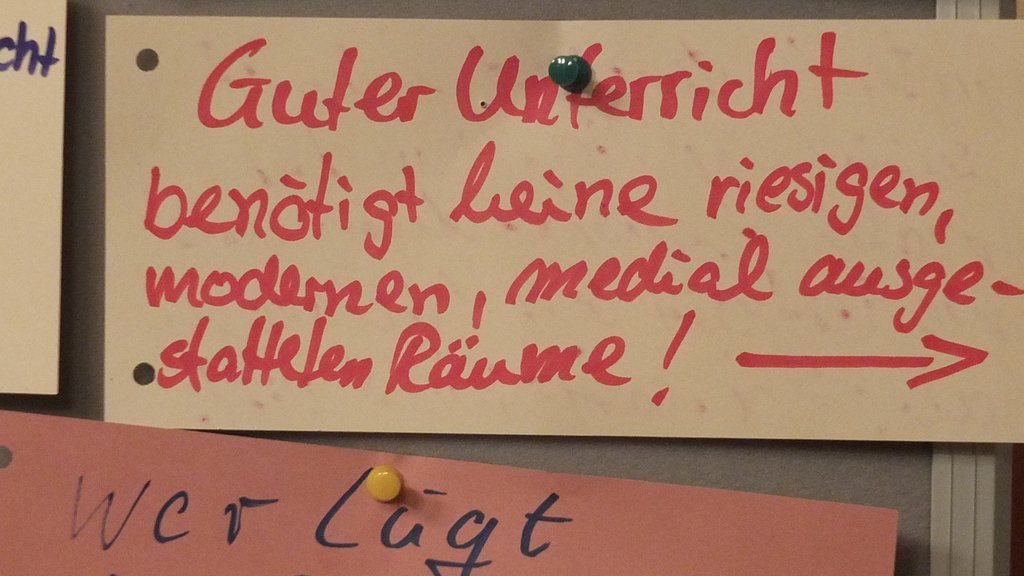 cht
Guter Unterricht
benötigt keine riesigen,
modernen, medial ausge-
statteten Räume! →
Wer lügt